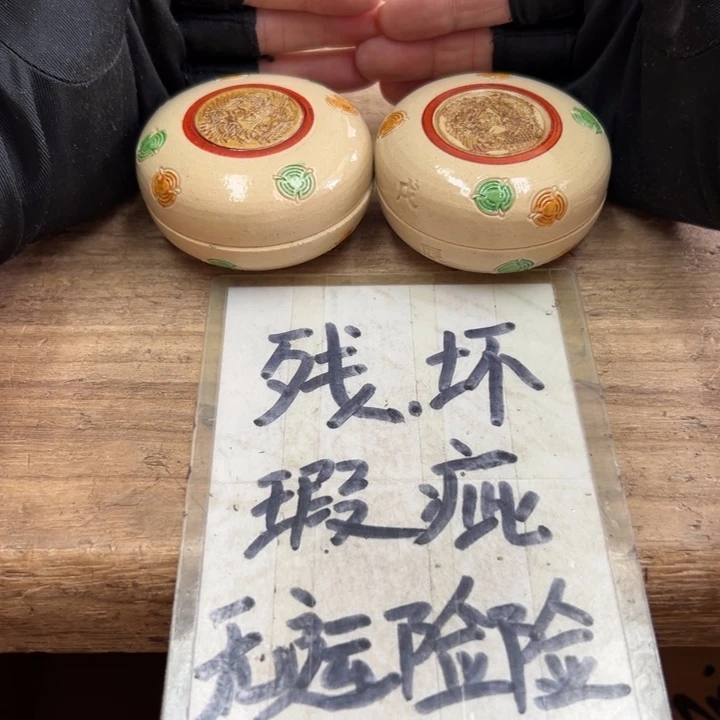 戌
残.坏
瑕疵
无运险险